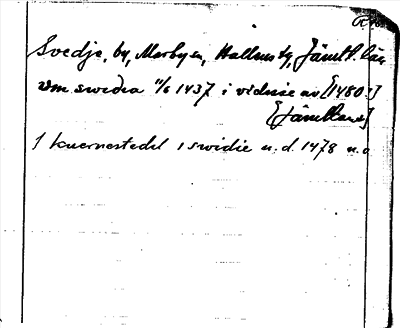 Svedje, by, Marby sn, Hallens tg, Jämtl. län
um swedia 11/6 1437 i vidisse av [1480:]
[Jämtland]
1 kuernestedel i swidie u. d. 1478 u. o